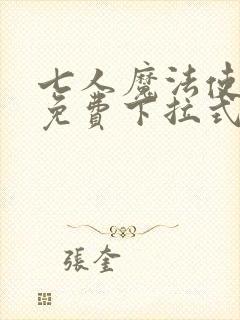 七人魔法使
免費下拉式
張奎